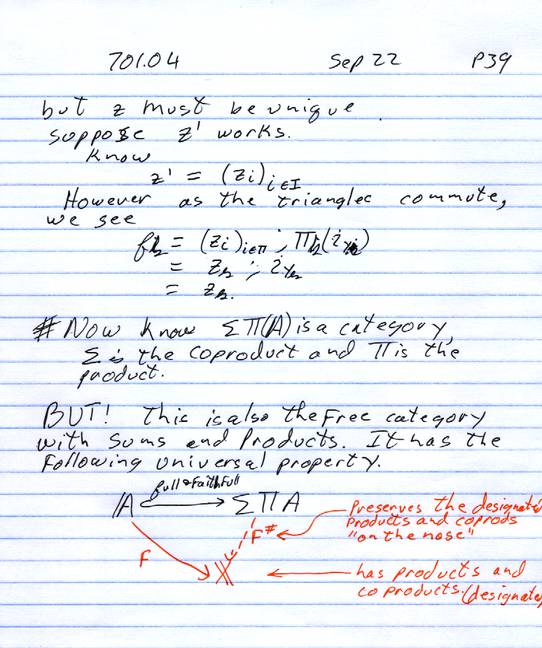 701.04 Sep 22 P39
but z must be unique.
suppose z' works.
Know
z' = (zi)i∈I
However as the triangles commute,
we see
fk = (zi)i∈I ; Πk(1Yi)
= zk ; 1Yk
= zk.
# Now know ΣΠ(A) is a category,
Σ is the coproduct and Π is the
product.
BUT! This is also the Free category
with Sums and Products. It has the
Following universal property.
full & faithfull
A → ΣΠA
Preserves the designated
Products and coprods
"on the nose"
F#
F
X
has products and
coproducts. (designated